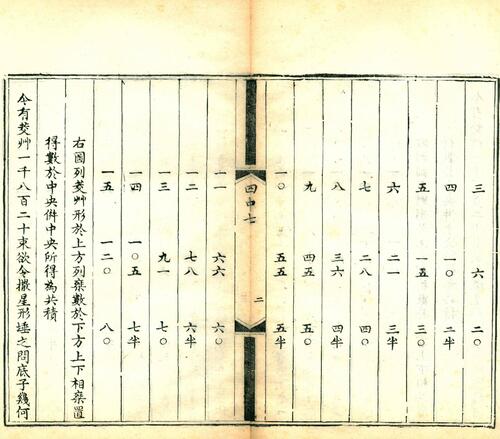 三 六 二〇
四 一〇 二半
五 一五 三〇
六 二一 三半
七 二八 四〇
八 三六 四半
九 四五 五〇
一〇 五五 五半
四中七 二
一一 六六 六〇
一二 七八 六半
一三 九一 七〇
一四 一〇五 七半
一五 一二〇 八〇
右圖列茭艸形於上方列乘數於下方上下相乘置
得數於中央倂中央所得為共積
今有茭艸一千八百二十束欲令撒星形埵之問底子幾何